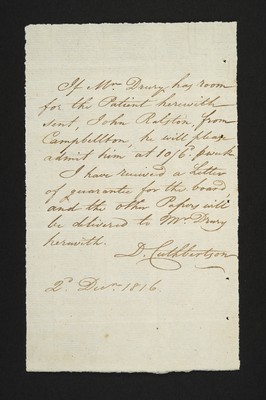 If Mr. Drury has room
for the Patient herewith
sent, John Ralston, from
Campbellton, he will please
admit him at 10/6 p. week
I have received a Letter
of guarantee for the board,
and the other Papers will
be delivered to Mr. Drury
herewith.
D. Cuthbertson
2d. Decr. 1816.